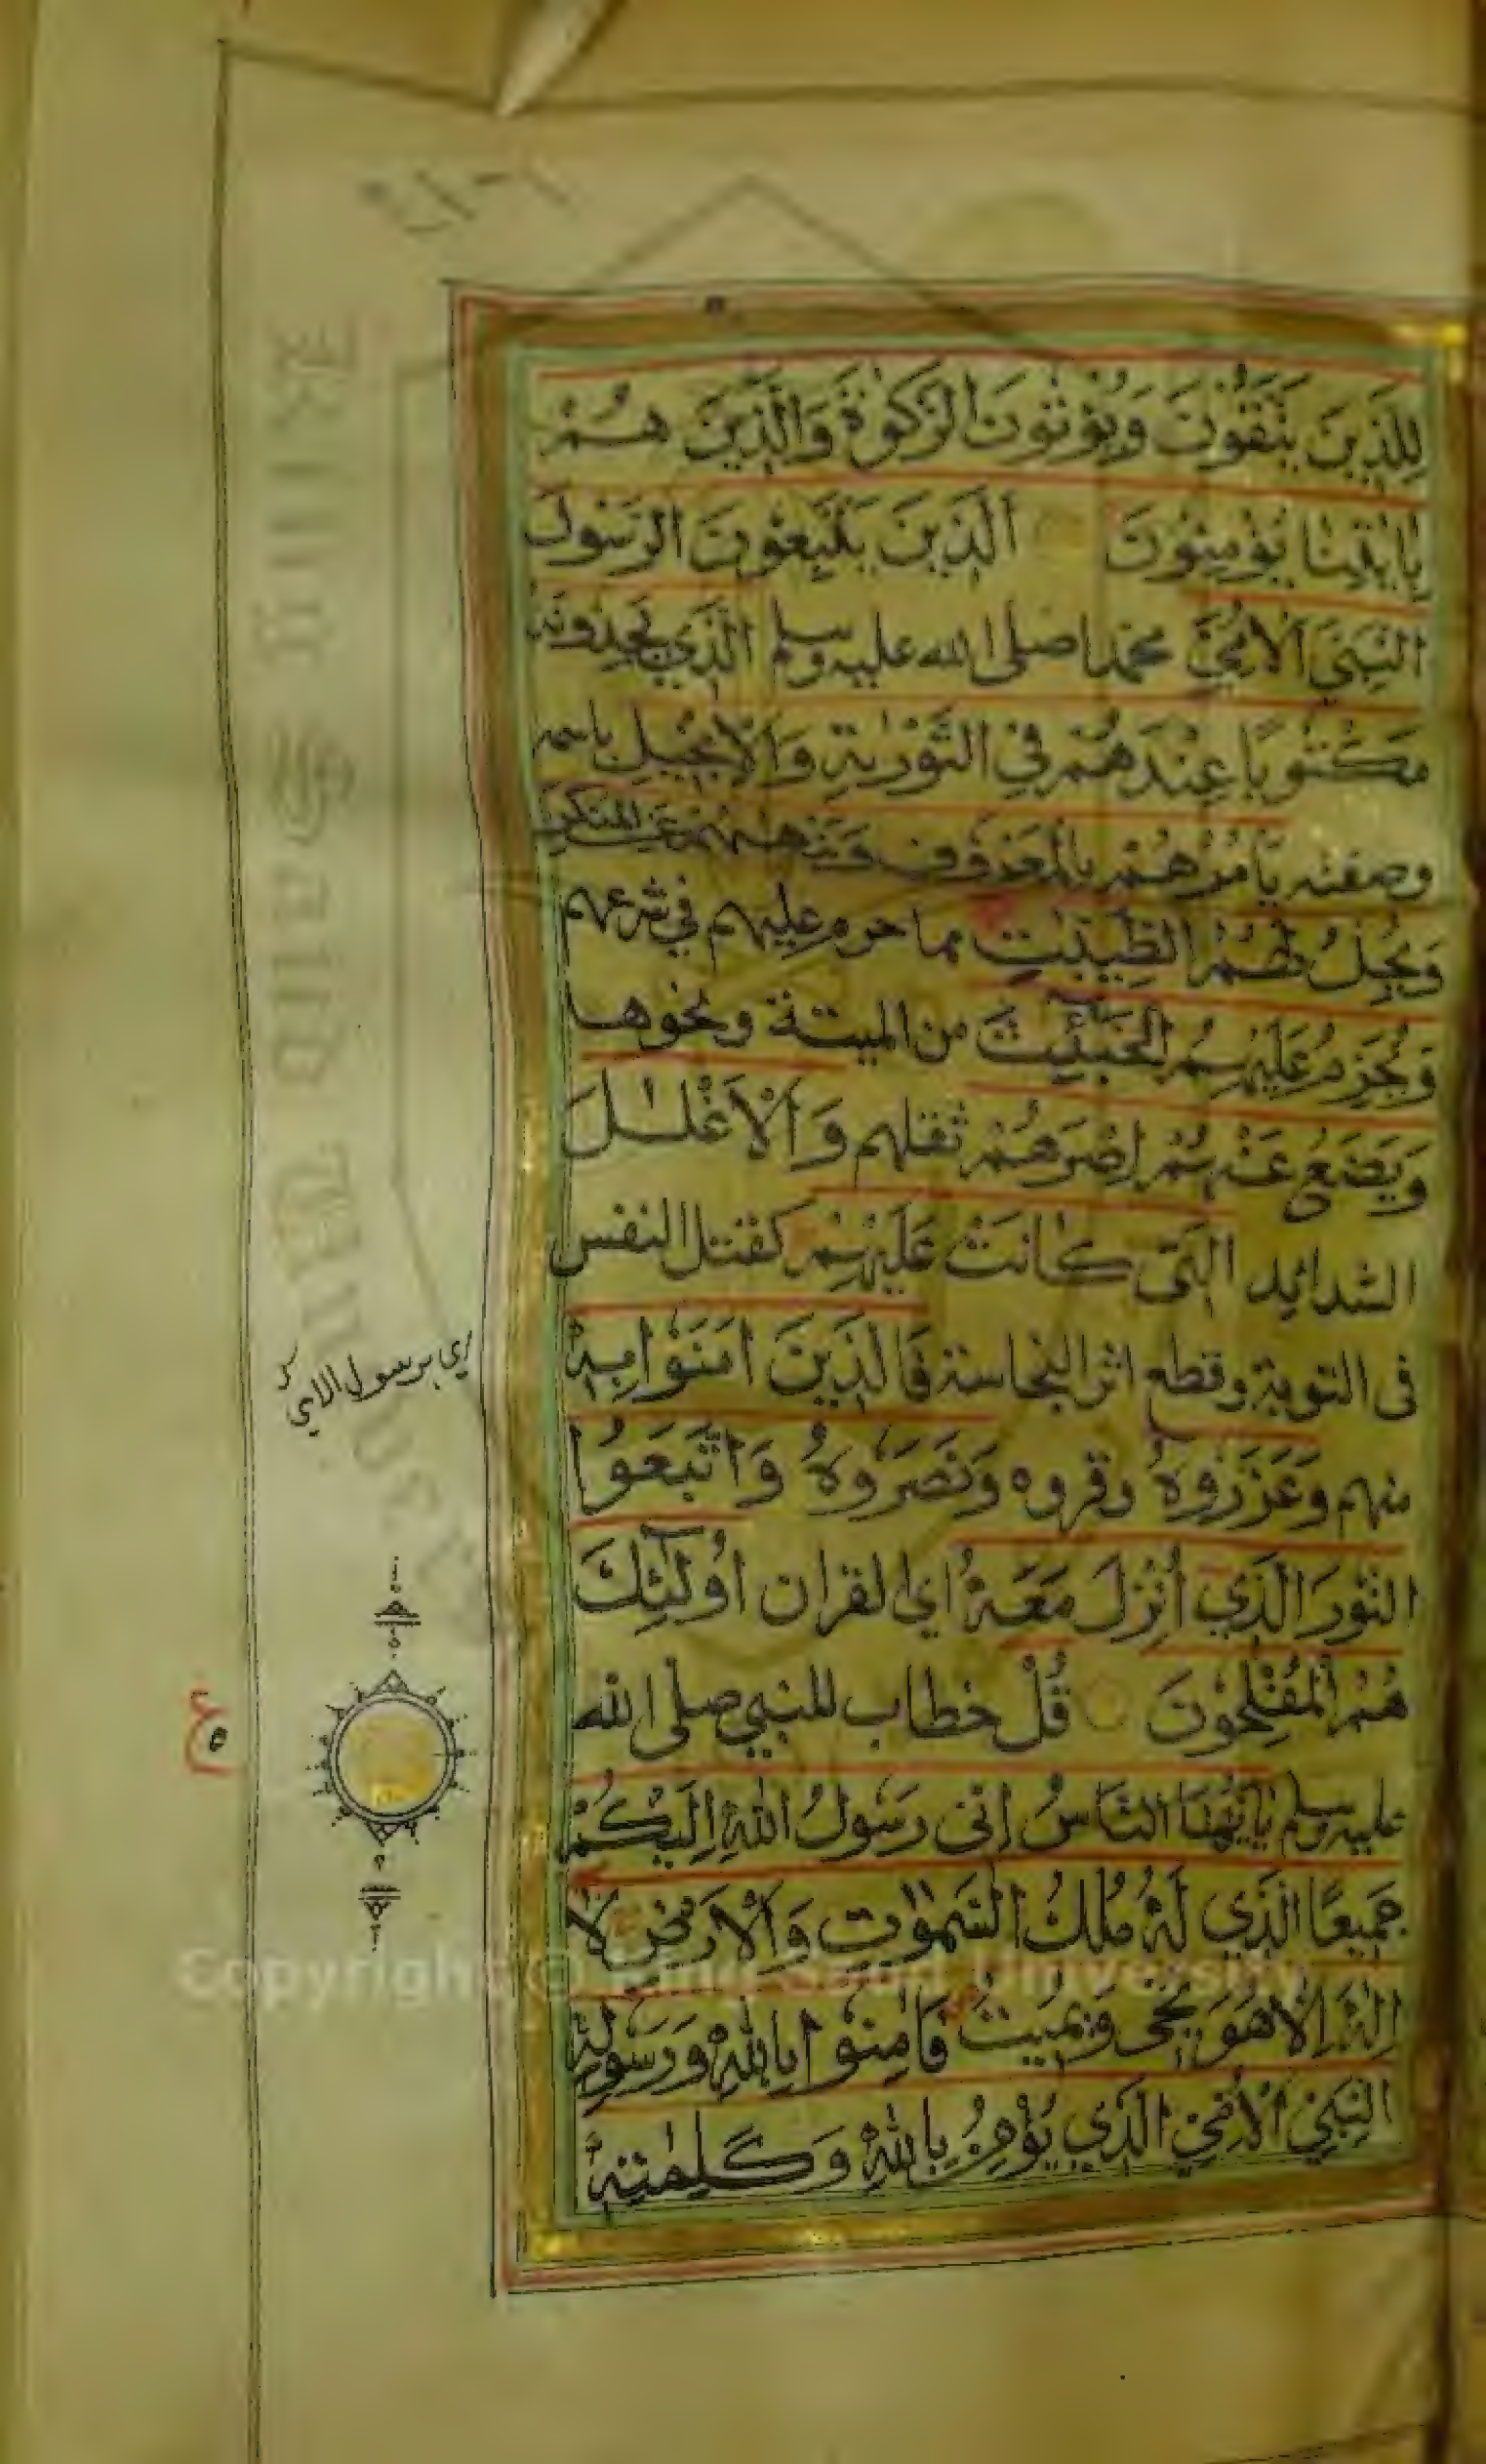 لِلَّذِينَ يَتَّقُونَ وَيُؤْتُونَ الزَّكٰوةَ وَالَّذِينَ هُمْ
بِاٰيٰتِنَا يُؤْمِنُونَ الَّذِينَ يَتَّبِعُونَ الرَّسُولَ
النَّبِيَّ الْاُمِّيَّ محمدا صلى الله عليه وسلم الَّذِي يَجِدُونَهُ
مَكْتُوبًا عِنْدَهُمْ فِي التَّوْرٰيةِ وَالْاِنْجِيلِ باسمه
وصفته يَأْمُرُهُمْ بِالْمَعْرُوفِ وَيَنْهٰىهُمْ عَنِ الْمُنْكَرِ
وَيُحِلُّ لَهُمُ الطَّيِّبٰتِ مما حرم عليهم في شرعهم
وَيُحَرِّمُ عَلَيْهِمُ الْخَبٰٓئِثَ من الميتة ونحوها
وَيَضَعُ عَنْهُمْ اِصْرَهُمْ ثقلهم وَالْاَغْلٰلَ
الشدائد الَّتِي كَانَتْ عَلَيْهِمْ كقتل النفس
فى التوبة وقطع اثر النجاسة فَالَّذِينَ اٰمَنُوا بِهٖ
منهم وَعَزَّرُوهُ وقروه وَنَصَرُوهُ وَاتَّبَعُوا
النُّورَ الَّذِي اُنْزِلَ مَعَهُ اي القران اُولٰٓئِكَ
هُمُ الْمُفْلِحُونَ قُلْ خطاب للنبي صلى الله
عليه وسلم يٰاَيُّهَا النَّاسُ اِنِّى رَسُولُ اللّٰهِ اِلَيْكُمْ
جَمِيعًا الَّذِي لَهُ مُلْكُ السَّمٰوٰتِ وَالْاَرْضِ لَا
اِلٰهَ اِلَّا هُوَ يُحْىٖ وَيُمِيتُ فَاٰمِنُوا بِاللّٰهِ وَرَسُولِهِ
النَّبِيِّ الْاُمِّيِّ الَّذِي يُؤْمِنُ بِاللّٰهِ وَكَلِمٰتِهٖ
اي برسول الامي
ع
Copyright © King Saud University
King Saud University